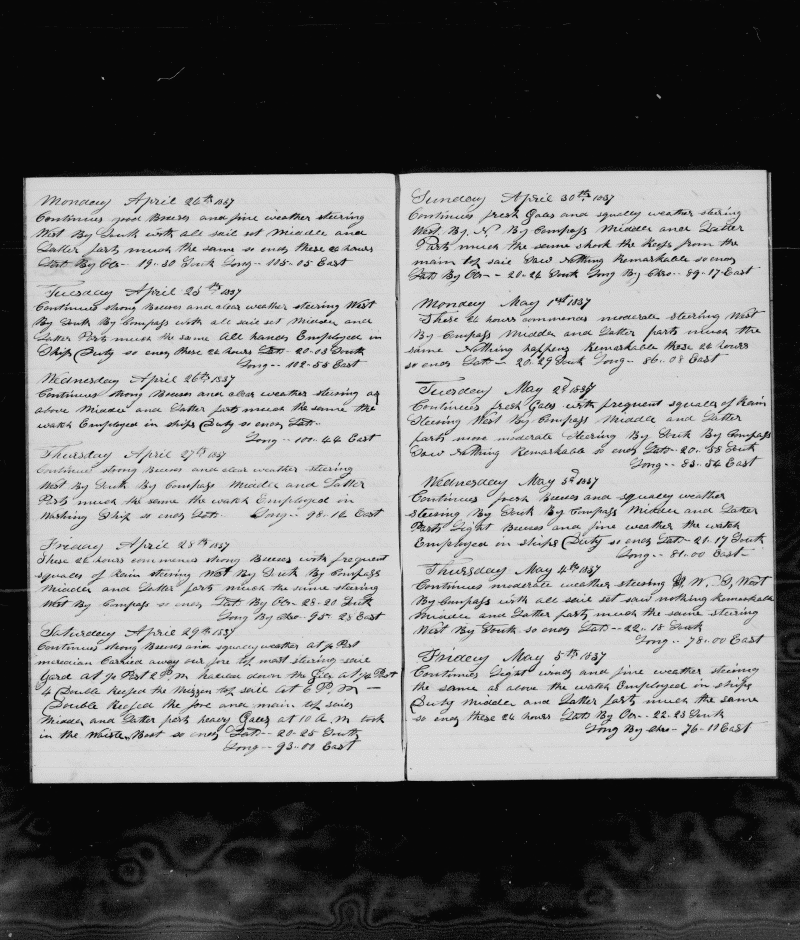 Monday April 24th 1837
Continues good Breeses and fine weather steering
West By South with all sail set Middle and
Latter parts much the same so ends these 24 hours
Latt By Obs - 19-30 South Long -- 105-05 East
Tuesday April 25th 1837
Continues strong Breeses and clear weather steering West
By South By Compass with all sail set Middle and
Latter Parts much the same All hands Employed in
Ships Duty so ends these 24 hours Latt- 20-03 South
Long -- 102-55 East
Wednesday April 26th 1837
Continues strong Breeses and clear weather steering as
above Middle and Latter parts much the same the
watch Employed in ships Duty so ends Latt--
Long -- 100-44 East
Thursday April 27th 1837
Continues strong Breeses and clear weather steering
West By South By Compass Middle and Latter
Parts much the same the watch Employed in
Washing Ship so ends Latt- Long -- 98-16 East
Friday April 28th 1837
These 24 hours commences strong Breeses with frequent
squales of Rain steering West By South By Compass
Middle and Latter parts much the same steering
West By Compass so ends Latt By Obs- 20-20 South
Long By Chro- 95-28 East
Saturday April 29th 1837
Continues strong Breeses and squaley weather at ½ Past
meredian Carried away our fore top mast steering sail
Yard at ½ Past 2 P.M. hauled down the Gibs at ½ Past
4 Double Reefed the Mizzen top sail at 6 P.M -
Double Reefed the fore and main top sails
Middle and Latter parts heavy Gales at 10 A.M. took
in the Waist Boat so ends Latt- 20-25 South
Long -- 93-00 East
Sunday April 30th 1837
Continues fresh Gales and squaley weather steering
West. By. N By Compass Middle and Latter
Parts much the same shook the Reefs from the
main top sail Saw Nothing Remarkable so ends
Latt By Obs - 20-24 South Long By Chro-- 89-17 East
Monday May 1st 1837
These 24 hours commences moderate steering West
By Compass Middle and Latter parts much the
same Nothing happens Remarkable these 24 hours
so ends Latt - 20-29 South Long -- 86-08 East
Tuesday May 2d 1837
Continues fresh Gales with frequent squales of Rain
Steering West By Compass Middle and Latter
parts more moderate steering By South By Compass
Saw Nothing Remarkable so ends Latt- 20-58 South
Long -- 83-54 East
Wednesday May 3d 1837
Continues fresh Breeses and squaley weather
steering By South By Compass Middle and Latter
Parts Light Breeses and fine weather the watch
Employed in ships Duty so ends Latt- 21-17 South
Long -- 81-00 East-
Thursday May 4th 1837
Continues moderate weather steering W. S. West
By Compass with all sail set saw nothing Remarkable
Middle and Latter parts much the same steering
West By South so ends Latt- 22-18 South
Long -- 78-00 East
Friday May 5th 1837
Continues Light winds and fine weather steering
the same as above the watch Employed in ships
Duty Middle and Latter parts much the same
so ends these 24 hours Latt By Obs- 22-23 South
Long By Chro- 76-11 East